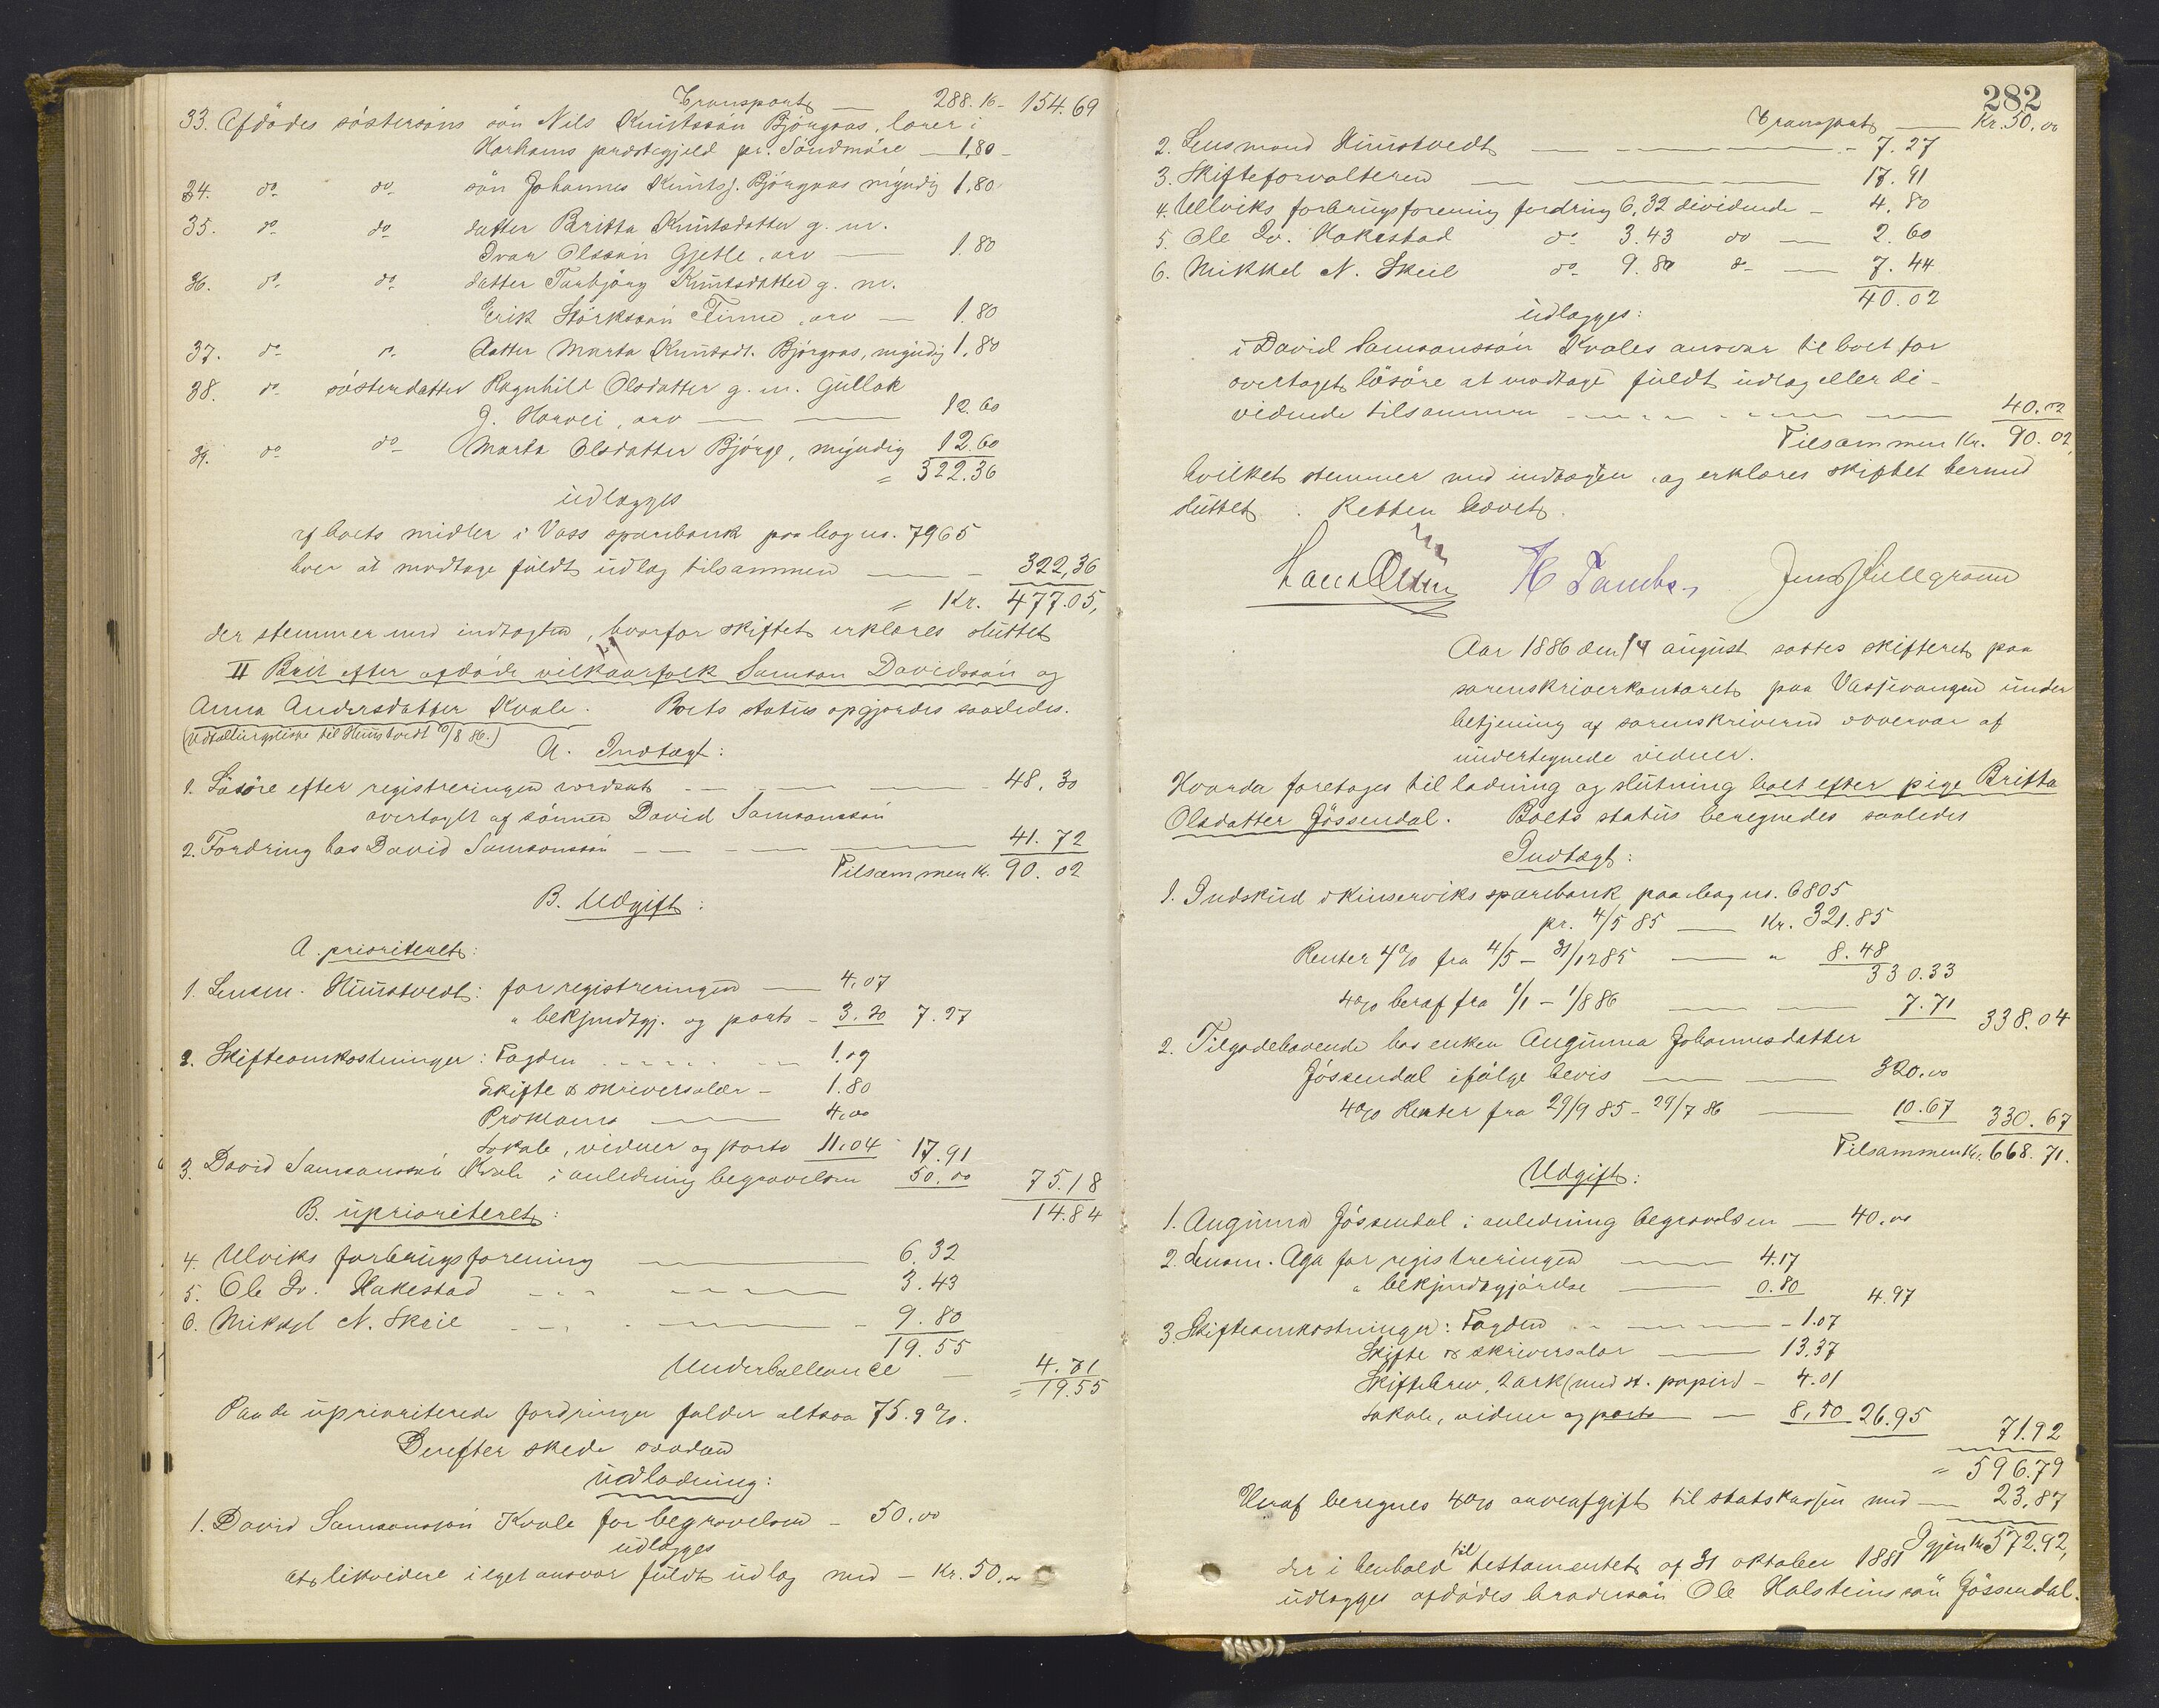 Transport — 288.16 - 154.69
33. Afdødes søstersøns søn Nils Knutssøn Bjørgaas, lærer i
Harhams prestegjeld pr. Søndmøre — 1,80 -
34. do do søn Johannes Knuts. Bjørgaas myndig 1,80
35. do do datter Britta Knutsdatter g. m.
Ivar Olssøn Gjelle, arv — 1.80
36. do do datter Torbjørg Knutsdatter g. m.
Erik Størkssøn Finne, arv — 1.80
37. do do datter Marta Knutsdt. Bjørgaas, myndig 1,80
38. do søsterdatter Ragnhild Olsdatter g. m. Gullak
J. Horvei, arv — 12.60
39. do do Marta Olsdatter Bjørge, myndig 12.60
= 322.36
udlægges
af boets midler i Voss sparebank paa bog no. 7965
hver at modtage fuldt udlæg tilsammen — 322,36
= Kr. 477.05,
der stemmer med indtægten, hvorfor skiftet erklæres sluttet
II Boet efter afdøde vilkaarfolk Samson Davidssøn og
Anna Andersdatter Kvale. Boets status opgjordes saaledes.
(Udtællingsliste til Himstvedt 10/8 86.)
A. Indtægt:
1. Løsøre efter registreringen værdsat — 48,30
overtaget af sønnen David Samsonssøn
2. Fordring hos David Samsonssøn — 41.72
Tilsammen Kr. 90.02
B. Udgift:
A. prioriteret:
1. Lensm. Himstvedt: for registreringen — 4,07
" bekjendtgj. og porto - 3.20 7.27
2. Skifteomkostninger: Fogden — 1.07
Skifte & skriversalær - 1.80
Proklama — 4,00
Lokale, vidner og porto 11.04 17.91
3. David Samsonssøn Kvale i anledning begravelsen 50,00 75.18
14.84
B. uprioriteret:
4. Ulviks forbrugsforening — 6.32
5. Ole Iv. Hakestad — 3.43
6. Mikkel N. Skeie — 9.80
19.55
Underballance — 4.71
= 19.55
Paa de uprioriterede fordringer falder altsaa 75.9 %.
Derefter skede saadan
udlodning:
1. David Samsonssøn Kvale for begravelsen - 50.00
udlægges
at likvidere i eget ansvar fuldt udlæg med - Kr. 50,00
282
Transport — Kr. 50,00
2. Lensmand Himstvedt — 7.27
3. Skifteforvalteren — 17.91
4. Ullviks forbrugsforening fordring 6,32 dividende - 4.80
5. Ole Iv. Hakestad do 3.43 do — 2.60
6. Mikkel N. Skeie do 9.80 do — 7.44
40.02
udlægges:
i David Samsonssøn Kvales ansvar til boet for
overtaget løsøre at modtage fuldt udlæg eller di-
vidende tilsammen — 40.02
Tilsammen Kr. 90.02,
hvilket stemmer med indtægten, og erklæres skiftet hermed
sluttet. Retten hævet.
Hans Olsen H Tambs Jens Kullgraum
Aar 1886 den 14 august sattes skifteret paa
sorenskriverkontoret paa Vossevangen under
betjening af sorenskriveren i overvær af
undertegnede vidner.
Hvorda foretages til lodning og slutning boet efter pige Britta
Olsdatter Jøssendal. Boets status beregnedes saaledes
Indtægt:
1. Indskud i Kinserviks sparebank paa bog no. 6805
pr. 4/5 85 — Kr. 321.85
Renter 4% fra 4/5 - 31/12 85 — " 8.48
330.33
4% heraf fra 1/1 - 1/8 86 — 7.71 338.04
2. Tilgodehavende hos enken Augunna Johannesdatter
Jøssendal ifølge bevis — 320,00
4% Renter fra 29/9 85 - 29/7 86 — 10.67 330.67
Tilsammen Kr. 668.71.
Udgift:
1. Augunna Jøssendal i anledning begravelsen — 40,00
2. Lensm. Aga for registreringen — 4.17
" bekjendtgjørelse — 0.80 4.97
3. Skifteomkostninger: Fogden — 1.07
Skifte & skriversalær — 13.37
Skiftebrev, 2 ark (med st. papir) - 4.01
Lokale, vidner og porto — 8,50 26.95 71.92
= 596.79
Heraf beregnes 4% arveafgift til statskassen med — 23,87
Igjen Kr. 572.92,
der i henhold til testamentet af 31 oktober 1881
udlægges afdødes brodersøn Ole Halsteinssøn Jøssendal.